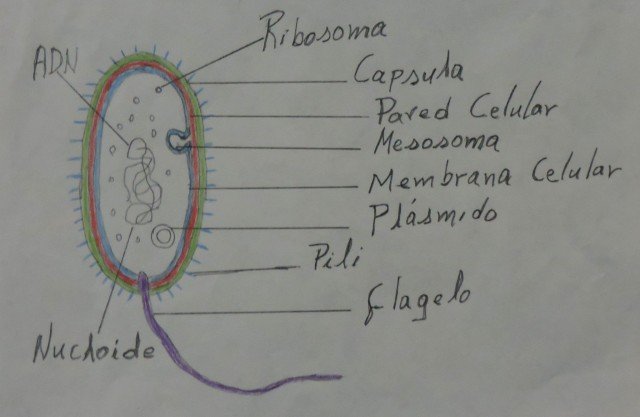 Ribosoma
ADN
Capsula
Pared Celular
Mesosoma
Membrana Celular
Plásmido
Pili
Flagelo
Nucloide